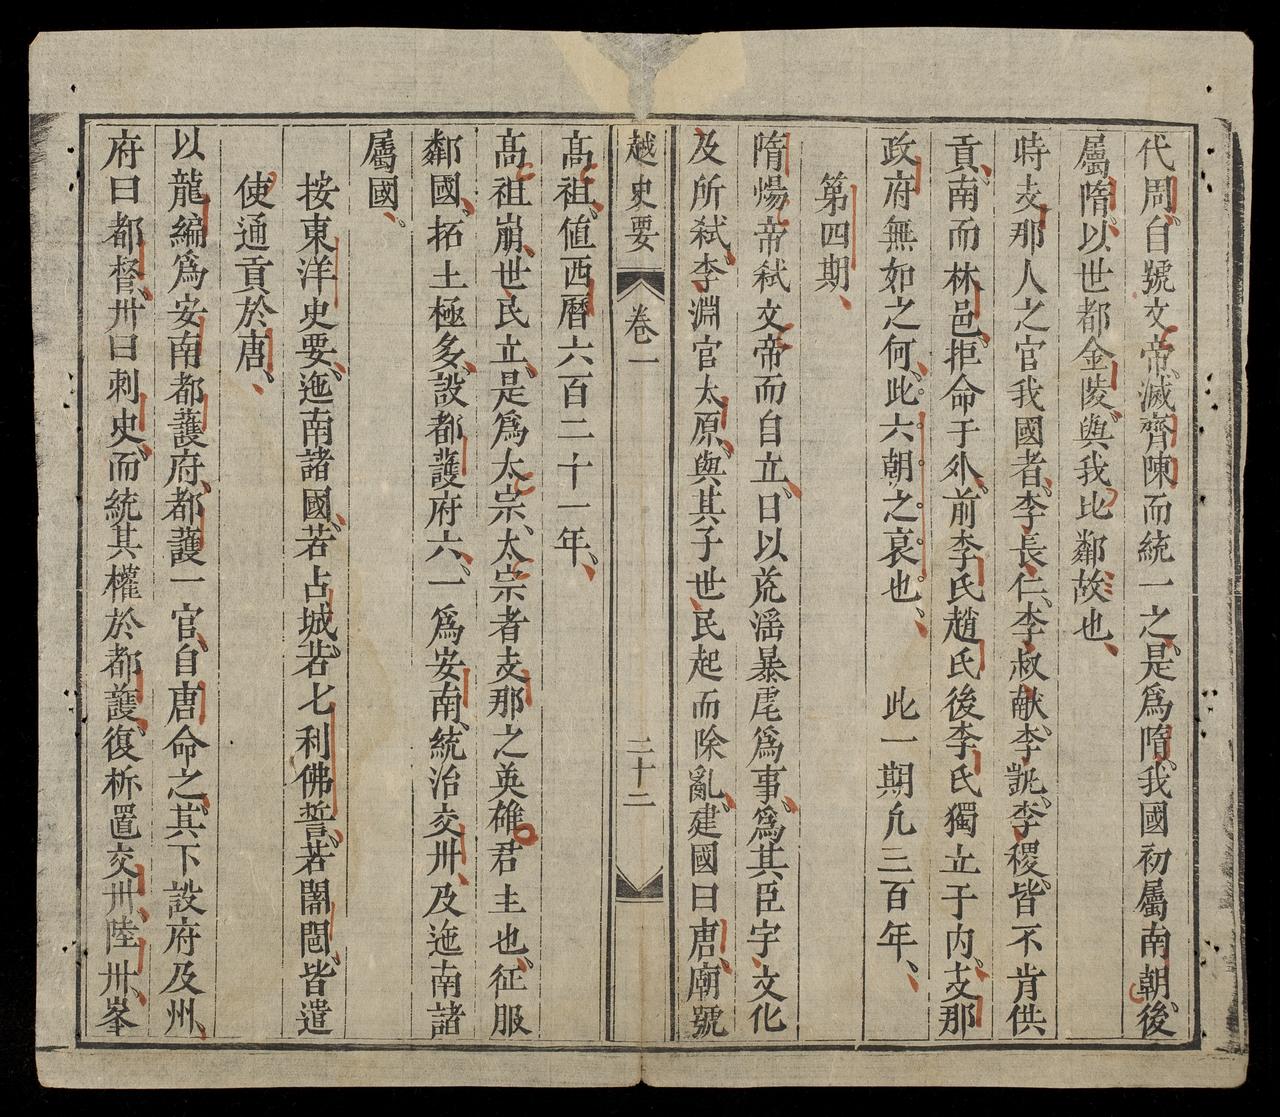 代周、自號文帝、滅齊陳而統一之、是爲隋、我國初屬南朝、後
屬隋、以世都金陵、與我比鄰故也、
時支那人之官我國者、李長仁、李叔献、李凱、李稷、皆不肯供
貢、南而林邑、拒命于外、前李氏趙氏後李氏獨立于内、支那
政府無如之何、此六朝之哀也、　此一期九三百年、
第四期、
隋煬帝弒文帝而自立、日以荒淫暴虐爲事、爲其臣宇文化
及所弒、李淵官太原、與其子世民起而除亂、建國曰唐、廟號
越史要　卷一　二十二
高祖、値西曆六百二十一年、
高祖崩、世民立、是爲太宗、太宗者支那之英雄君主也、征服
鄰國、拓土極多、設都護府六、一爲安南、統治交州、及迤南諸
屬國、
按東洋史要、迤南諸國、若占城、若七利佛誓、若闍閭、皆遣
使通貢於唐、
以龍編爲安南都護府、都護一官、自唐命之、其下設府及州、
府曰都督、州曰刺史、而統其權於都護、復析置交州、陸州、峯